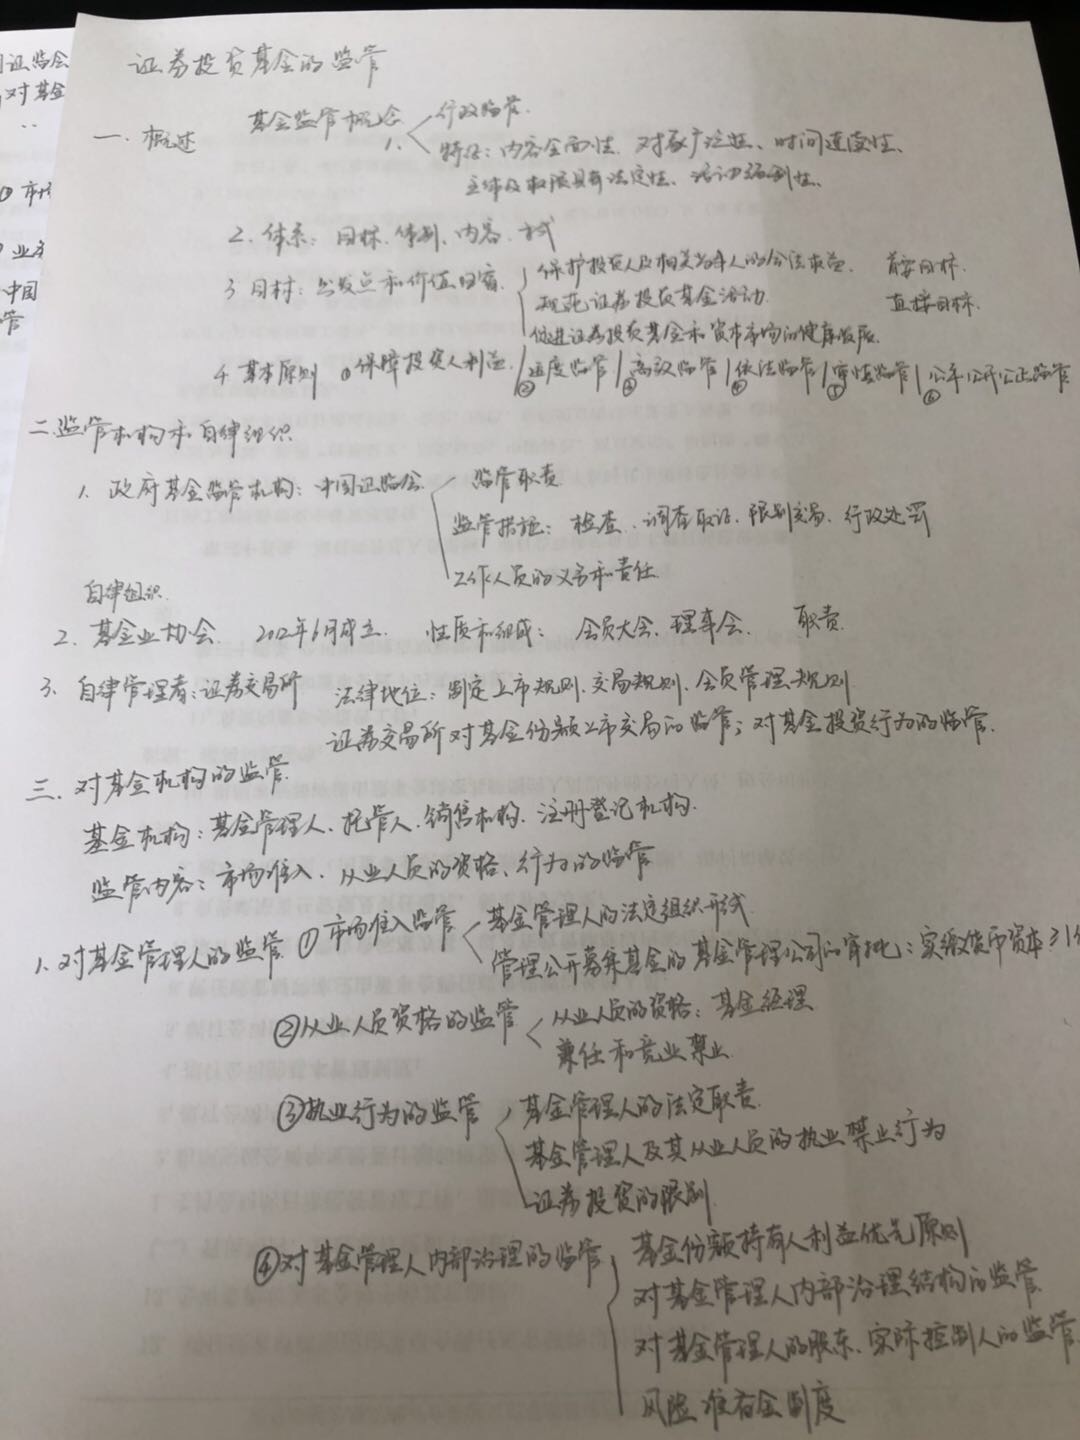 证券投资基金的监管
一、概述
基金监管概念
1.
行政监管.
特征：内容全面性、对象广泛性、时间连续性、
主体及权限具有法定性、活动强制性.
2. 体系：目标、体制、内容、方式
3 目标：出发点和价值归宿
保护投资人及相关当事人的合法权益. 首要目标.
规范证券投资基金活动. 直接目标.
促进证券投资基金和资本市场的健康发展.
4 基本原则 ①保障投资人利益 | ②适度监管 | ③高效监管 | ④依法监管 | ⑤审慎监管 | ⑥公平公开公正监管
二.监管机构和自律组织
1. 政府基金监管机构：中国证监会
监管职责
监管措施：检查、调查取证、限制交易、行政处罚
工作人员的义务和责任.
自律组织.
2. 基金业协会. 2012年6月成立. 性质和组成：会员大会、理事会. 职责.
3. 自律管理者：证券交易所 法律地位：制定上市规则、交易规则、会员管理规则
证券交易所对基金份额上市交易的监管；对基金投资行为的监管.
三、对基金机构的监管.
基金机构：基金管理人、托管人、销售机构、注册登记机构.
监管内容：市场准入、从业人员的资格、行为的监管
1.对基金管理人的监管 ①市场准入监管
基金管理人的法定组织形式
管理公开募集基金的基金管理公司的审批：实缴货币资本3亿
②从业人员资格的监管
从业人员的资格：基金经理
兼任和竞业禁止.
③执业行为的监管
基金管理人的法定职责.
基金管理人及其从业人员的执业禁止行为
证券投资的限制.
④对基金管理人内部治理的监管
基金份额持有人利益优先原则
对基金管理人内部治理结构的监管
对基金管理人的股东、实际控制人的监管
风险准备金制度
证监会
对基金
① 市场
中国
管